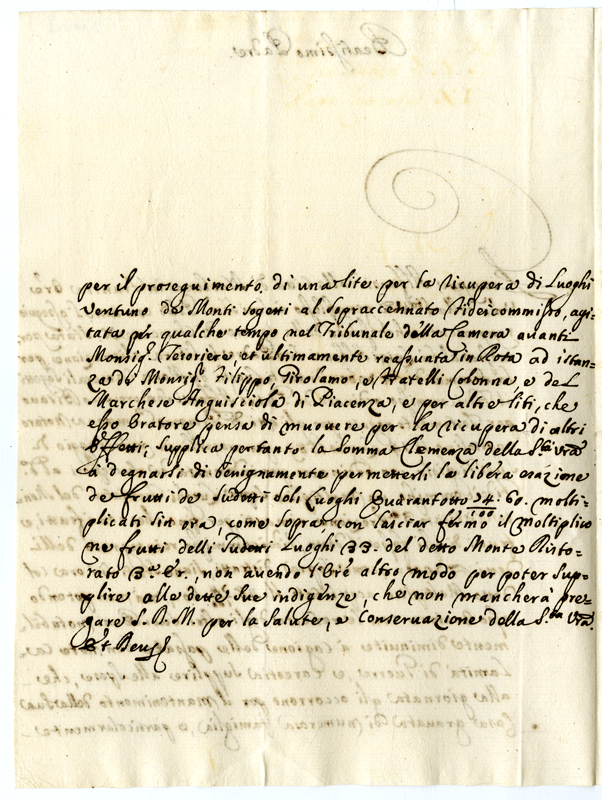 per il proseguimento di una lite per la ricupera di Luoghi
ventuno de Monti sogetti al sopraccennato fideicommisso, agi-
tata per qualche tempo nel Tribunale della Camera avanti
Monsig.r Tesoriere, et ultimamente reassunta in Rota ad istan-
za de Monsig.r Filippo, Girolamo, e fratelli Colonna, e del
Marchese Anguisciola di Piacenza, e per altre liti, che
esso Oratore pensa di muovere per la ricupera di altri
effetti; supplica pertanto la somma Clemenza della S.tà V.ra
à degnarsi di benignamente permetterli la libera esazione
de frutti de sudetti soli Luoghi Quarantotto 24. 60. molti-
100
plicati sin ora, come sopra con lasciar fermo il moltiplico
ne frutti delli sudetti Luoghi 33. del detto Monte Risto-
rato 3.o Er., non avendo l'Ore altro modo per poter sup-
plire alle dette sue indigenze, che non mancherà pre-
gare S. D. M. per la salute, e conservazione della S.tà V.ra